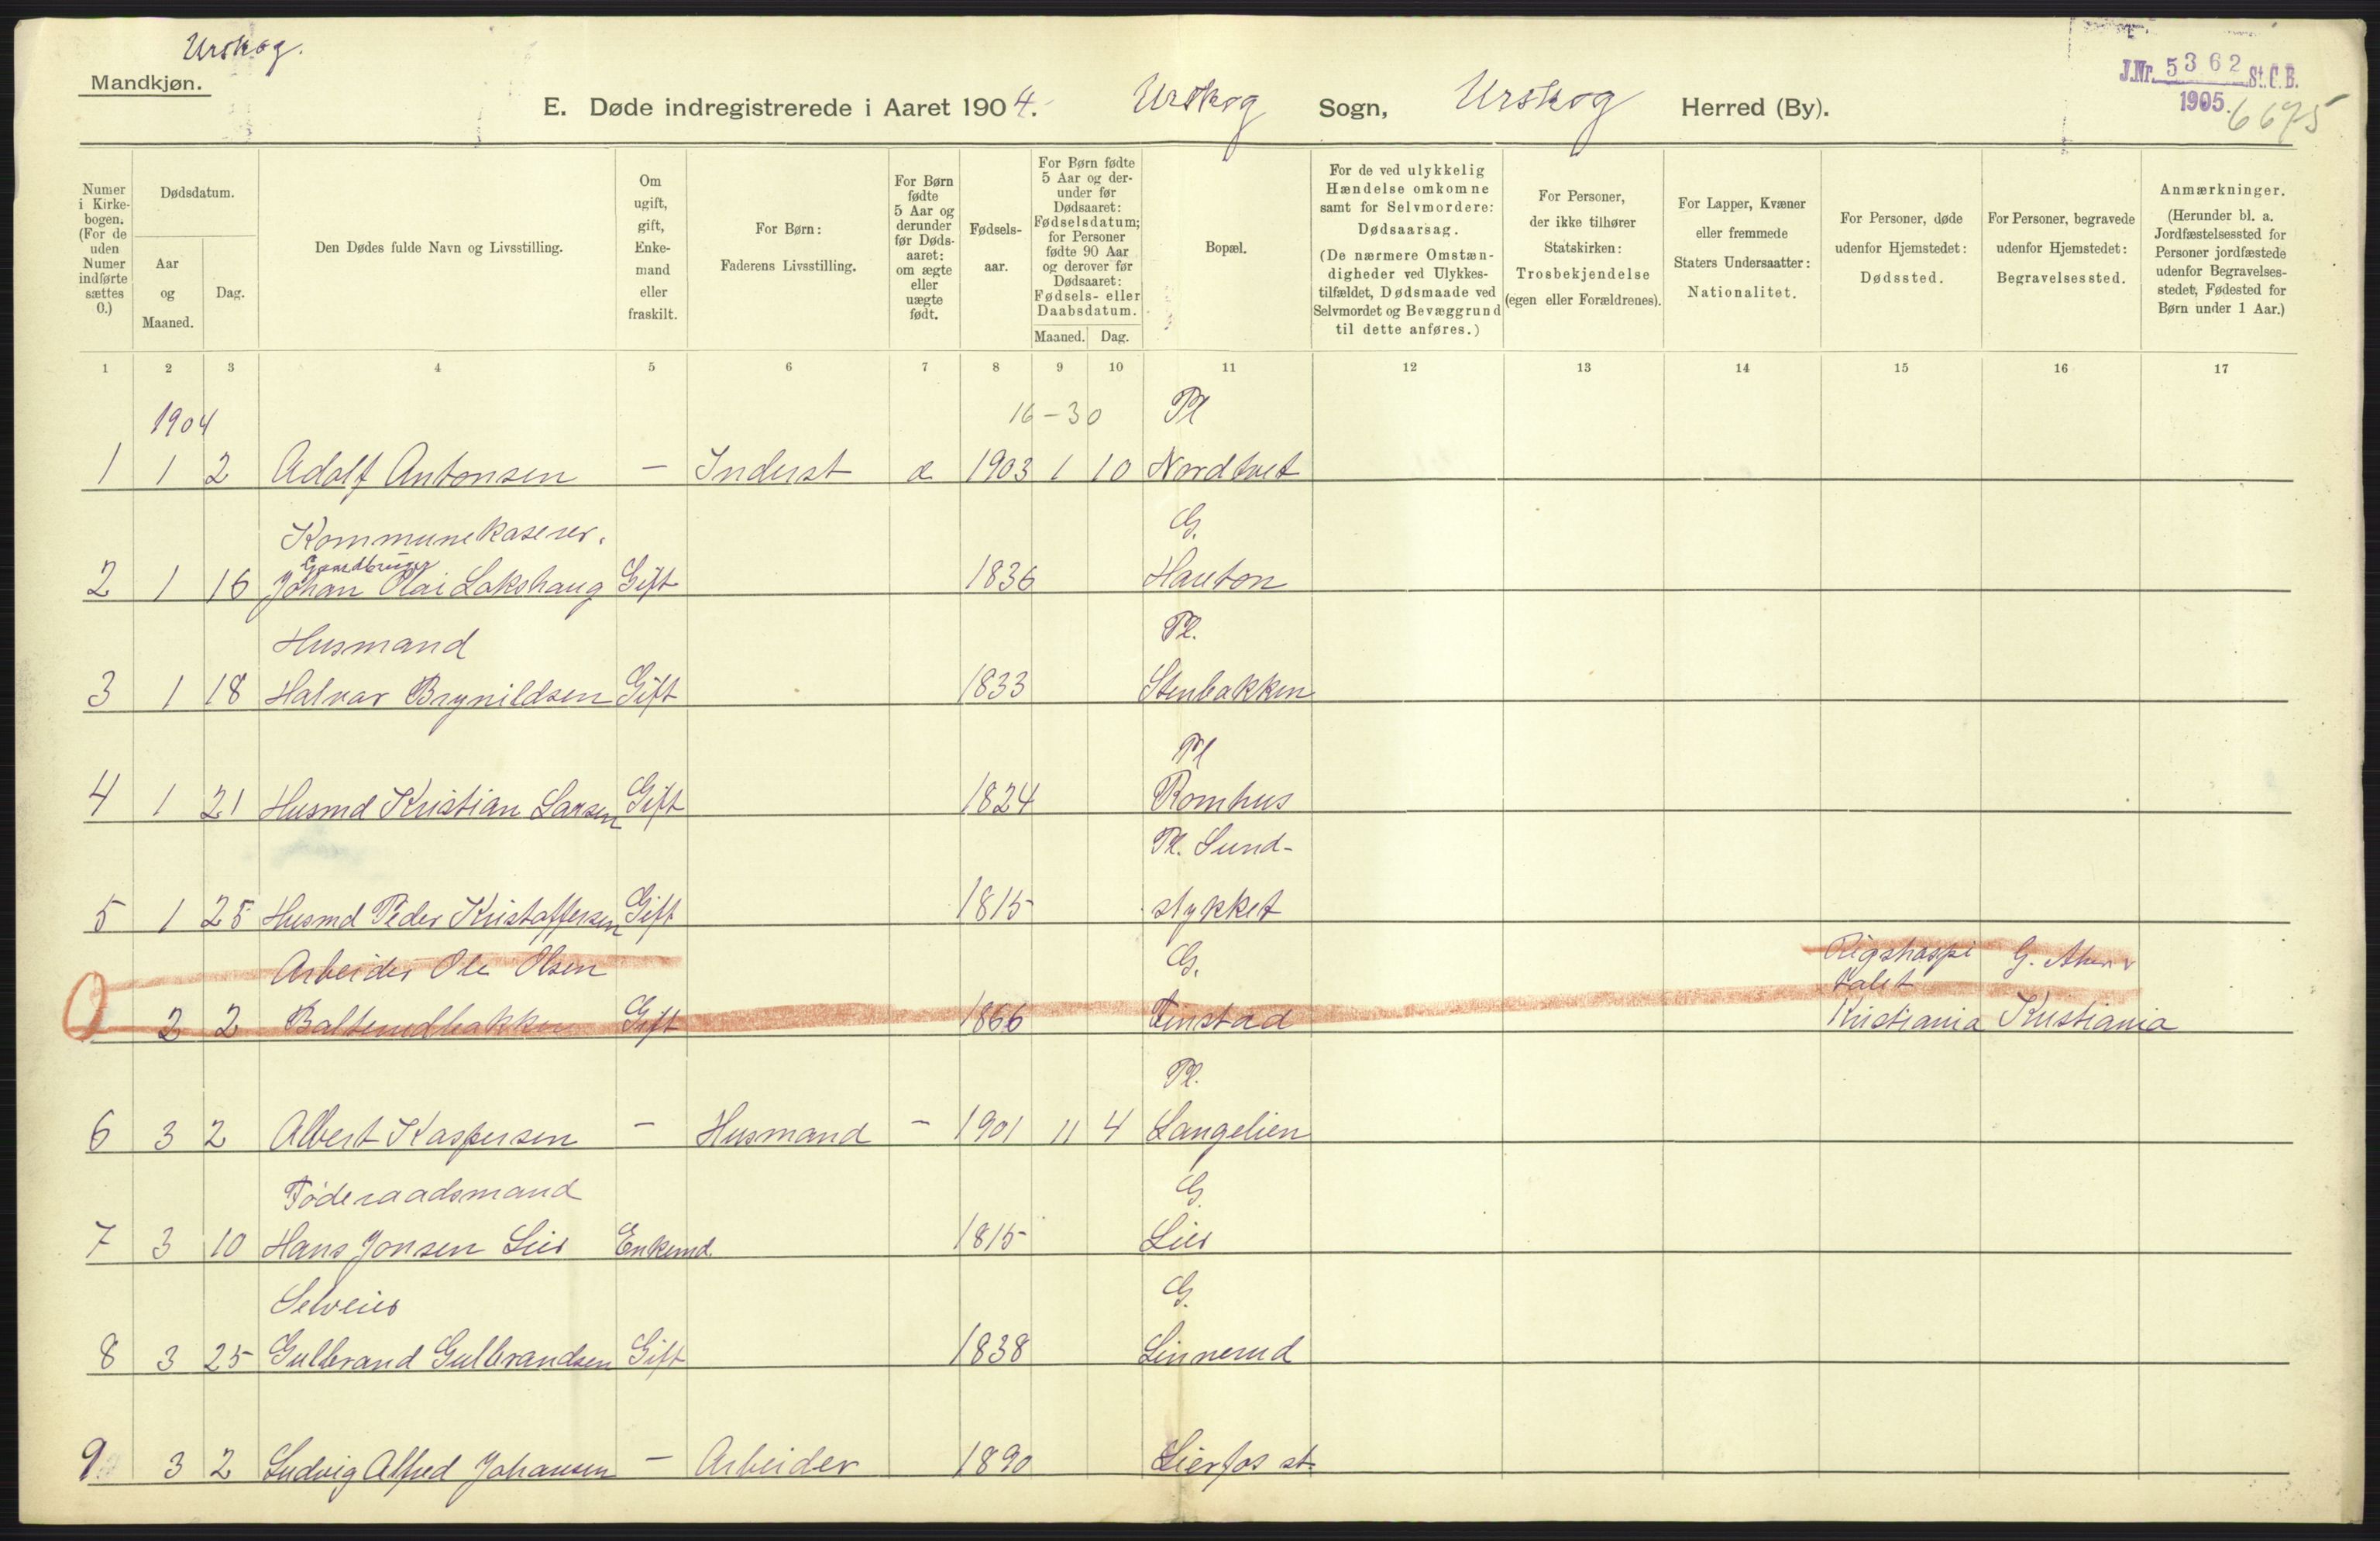 Urskog.
Mandkjøn.
E. Døde indregistrerede i Aaret 1904. Urskog Sogn, Urskog Herred (By).
J.Nr. 5362 St.C.B.
1905.
6675
Numer i Kirkebogen. (For de uden Numer indførte sættes 0.)
Dødsdatum.
Aar og Maaned.
Dag.
Den Dødes fulde Navn og Livsstilling.
Om ugift, gift, Enkemand eller fraskilt.
For Børn: Faderens Livsstilling.
For Børn fødte 5 Aar og derunder før Dødsaaret: om ægte eller uægte født.
Fødselsaar.
For Børn fødte 5 Aar og derunder før Dødsaaret: Fødselsdatum; for Personer fødte 90 Aar og derover før Dødsaaret: Fødsels- eller Daabsdatum.
Maaned. Dag.
Bopæl.
For de ved ulykkelig Hændelse omkomne samt for Selvmordere: Dødsaarsag. (De nærmere Omstændigheder ved Ulykkestilfældet, Dødsmaade ved Selvmordet og Bevæggrund til dette anføres.)
For Personer, der ikke tilhører Statskirken: Trosbekjendelse (egen eller Forældrenes).
For Lapper, Kvæner eller fremmede Staters Undersaatter: Nationalitet.
For Personer, døde udenfor Hjemstedet: Dødssted.
For Personer, begravede udenfor Hjemstedet: Begravelsessted.
Anmærkninger. (Herunder bl. a. Jordfæstelsessted for Personer jordfæstede udenfor Begravelsesstedet, Fødested for Børn under 1 Aar.)
1 2 3 4 5 6 7 8 9 10 11 12 13 14 15 16 17
1904 16-30 Pl
1 1 2 Adolf Antonsen - Inderst æ 1903 1 10 Nordtvet
Kommunekaserer. G.
Gaardbruger
2 1 16 Johan Olai Lakshaug Gift 1836 Hauton
Husmand Pl.
3 1 18 Halvar Brynildsen Gift 1833 Stenbakken
Pl
4 1 21 Husmd Kristian Larsen Gift 1824 Romhus
Pl. Sund-
5 1 25 Husmd Peder Kristoffersen Gift 1815 stykket
Arbeider Ole Olsen G. Rigshospi G. Aker
talet
0 2 2 Balterudbakken Gift 1866 Kristiania Kristiania
Pl.
6 3 2 Albert Kaspersen - Husmand - 1901 11 4 Langelien
Föderaadsmand G.
7 3 10 Hans Jonsen Lier Enkemd 1815 Lier
Selveier G.
8 3 25 Gulbrand Gulbrandsen Gift 1838 Linnerud
9 3 2 Ludvig Alfred Johansen - Arbeider 1890 Lierfos st.